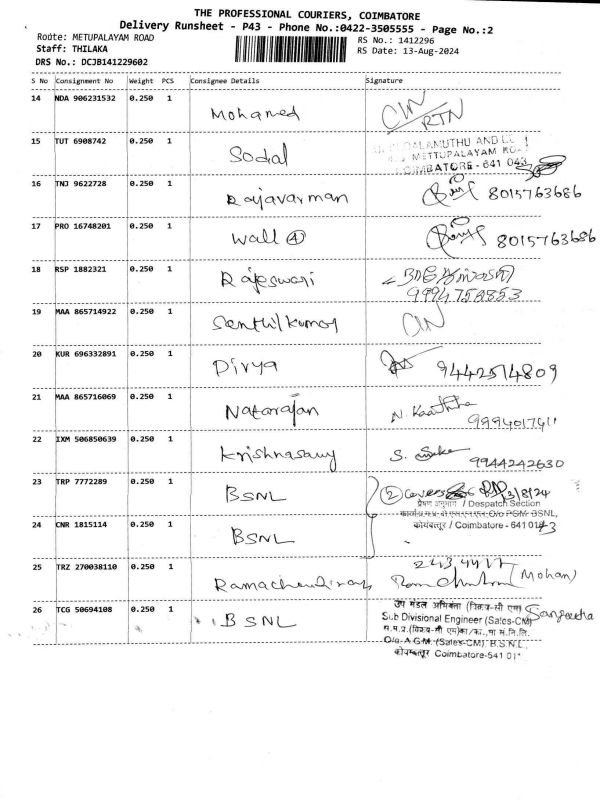 THE PROFESSIONAL COURIERS, COIMBATORE
Delivery Runsheet - P43 - Phone No.:0422-3505555 - Page No.:2
Route: METUPALAYAM ROAD
RS No.: 1412296
Staff: THILAKA
RS Date: 13-Aug-2024
DRS No.: DCJB141229602
S No Consignment No Weight PCS Consignee Details Signature
14 NDA 906231532 0.250 1 Mohamed CIN/RTN
15 TUT 6908742 0.250 1 Sodal
METTUPALAYAM
COIMBATORE - 641 043
16 TNJ 9622728 0.250 1 Rajavarman 8015763686
17 PRO 16748201 0.250 1 Wall 4 8015763686
18 RSP 1882321 0.250 1 Rajeswari
9994758853
19 MAA 865714922 0.250 1 Senthilkumar CIN
20 KUR 696332891 0.250 1 Divya 9442514809
21 MAA 865716069 0.250 1 Natarajan N. 9994017411
22 IXM 506850639 0.250 1 Krishnasamy S. 9944242630
23 TRP 7772289 0.250 1 BSNL 2 Covers 13/8/24
प्रेषण अनुभाग / Despatch Section
O/o PGM BSNL,
24 CNR 1815114 0.250 1 BSNL
कोयंबत्तूर / Coimbatore - 641 043
25 TRZ 270038110 0.250 1 Ramachendiran (Mohan)
26 TCG 50694108 0.250 1 BSNL Sangeetha
उप मंडल अभियंता (विक्रय-सी एम)
Sub Divisional Engineer (Sales-CM)
O/o A.G.M. (Sales-CM), B.S.N.L,
कोयम्बत्तूर Coimbatore-641 01